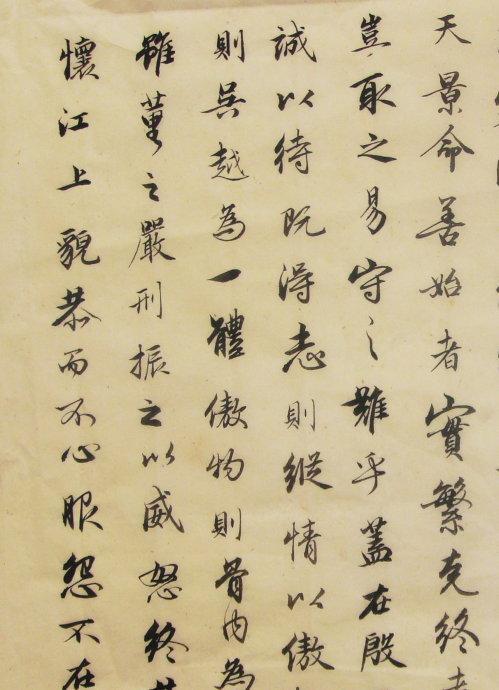 天景命善始者實繁克終者
豈取之易守之難乎蓋在殷
誠以待既得志則縱情以傲
則吳越為一體傲物則骨肉為
雖董之嚴刑振之以威怒終
懷江上貌恭而不心服怨不在